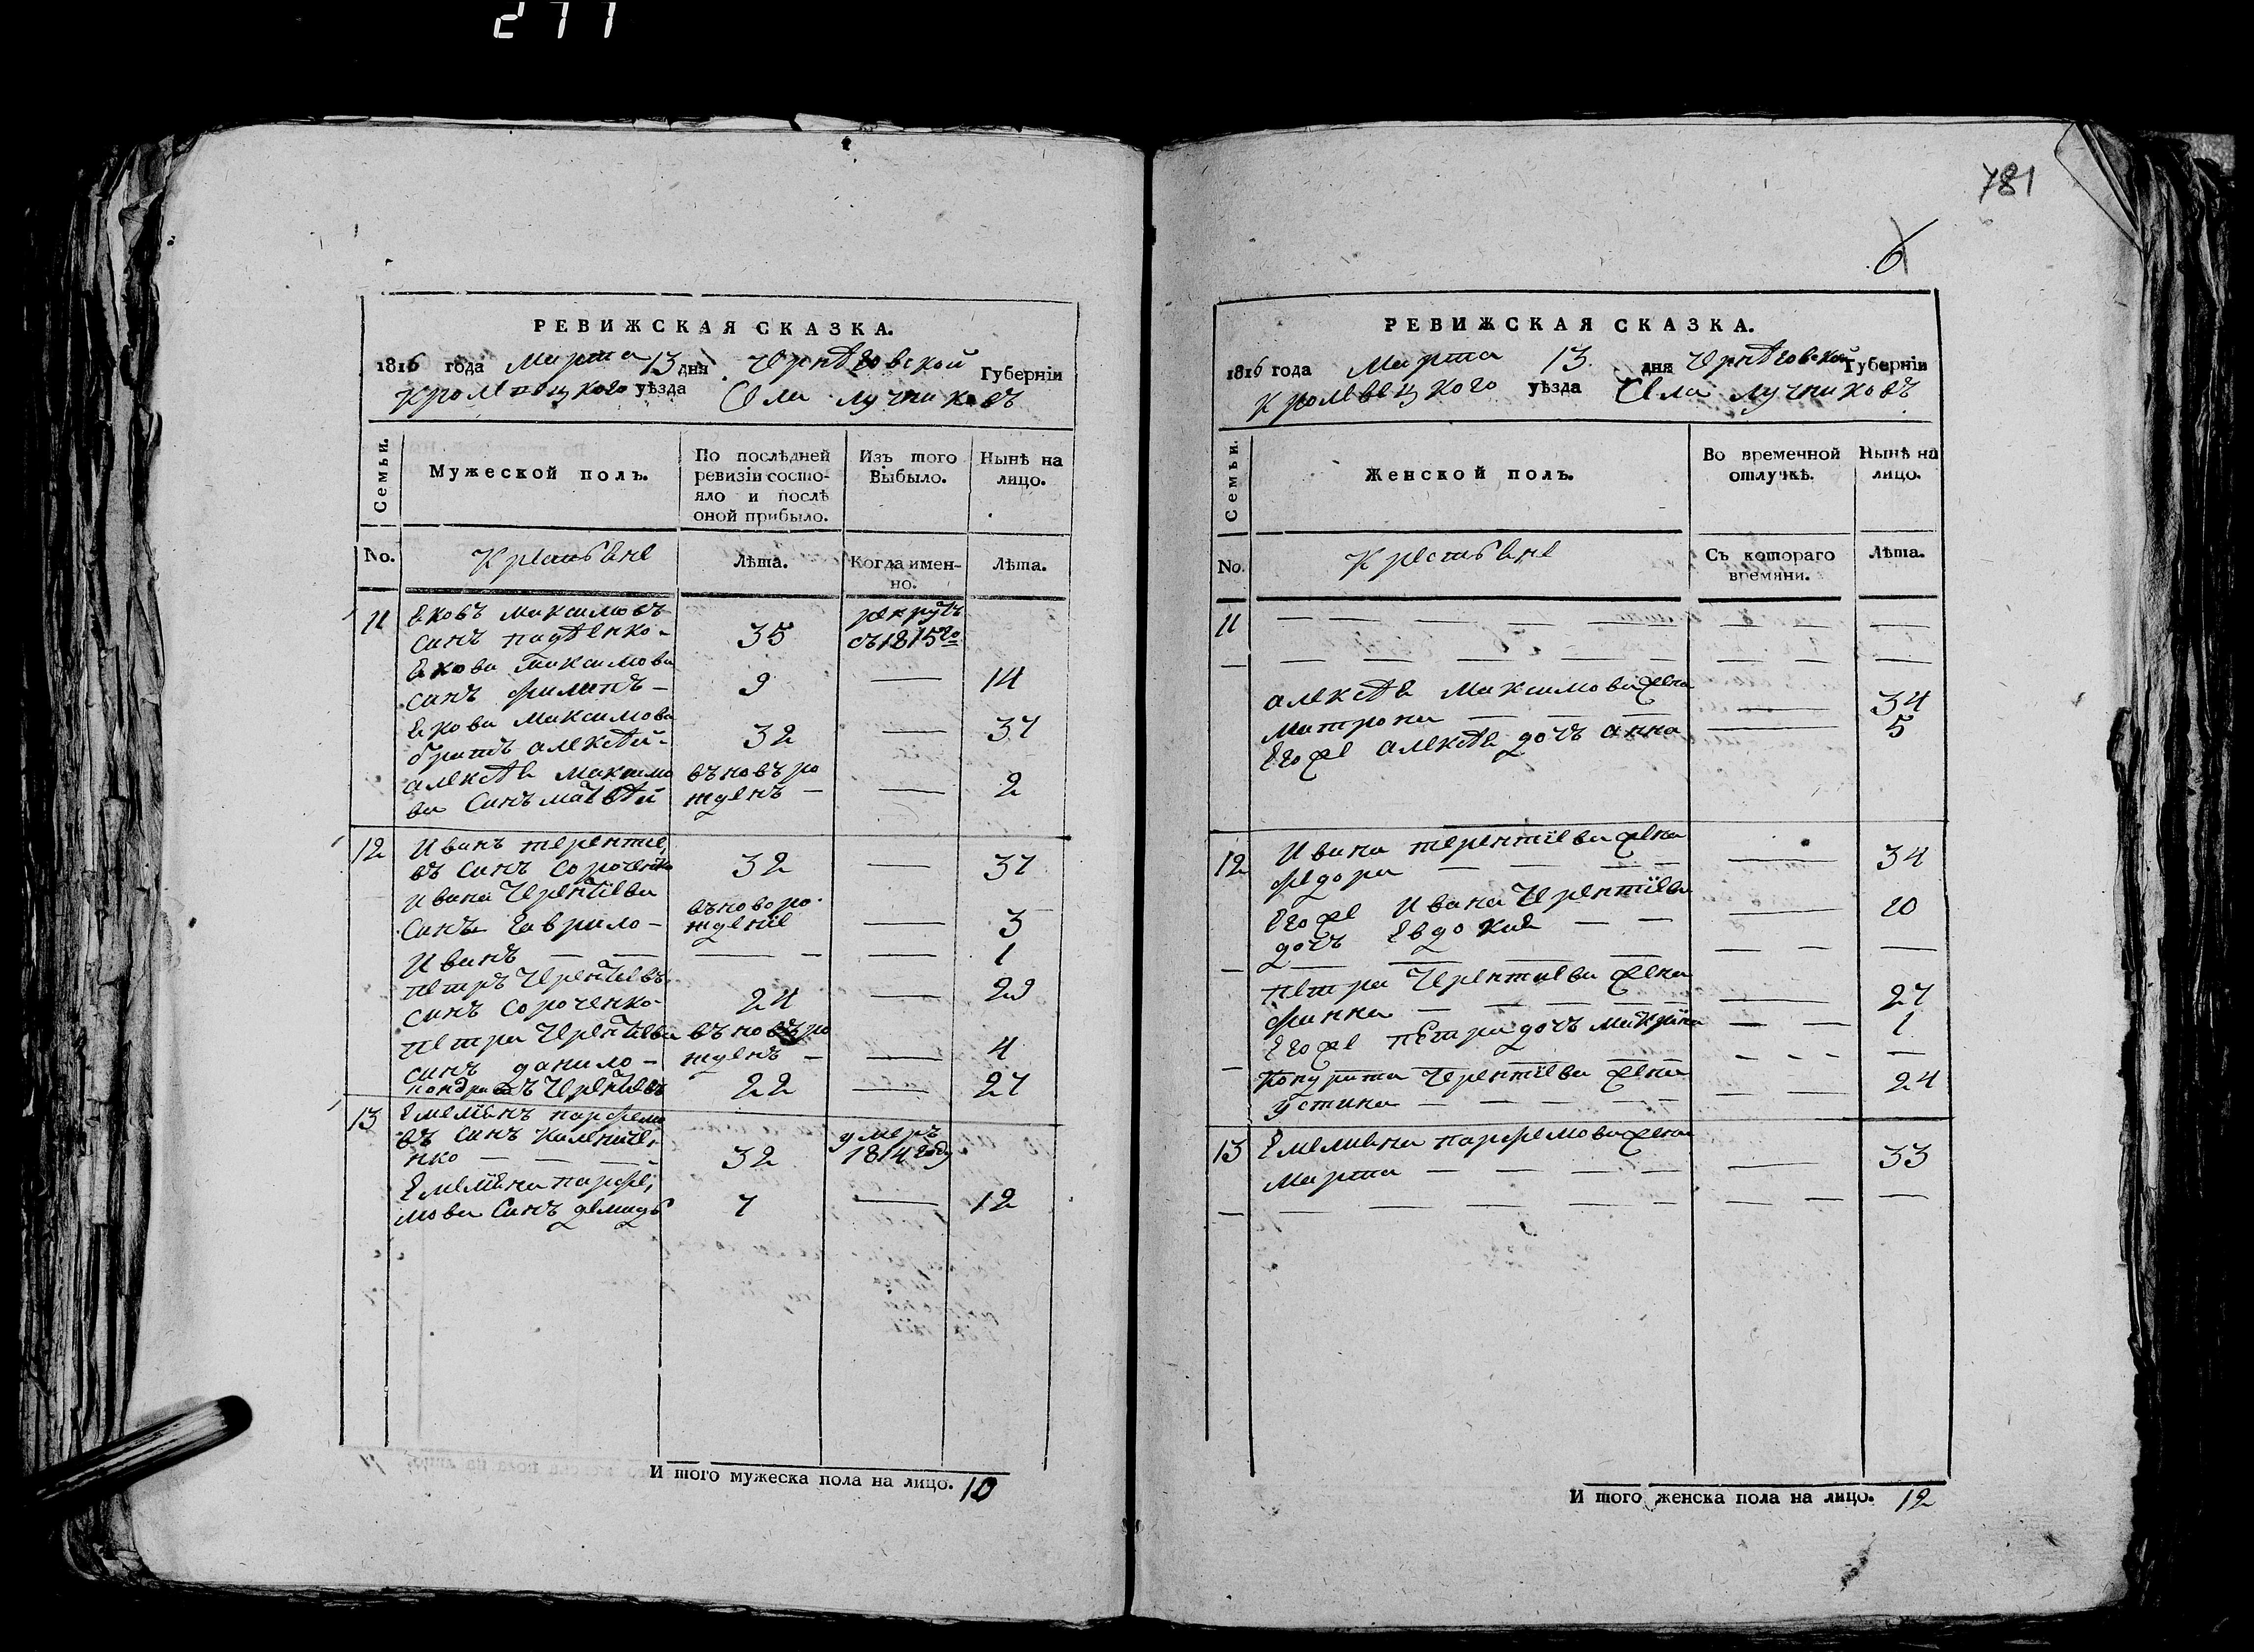 277
РЕВИЖСКАЯ СКАЗКА.
1816 года Марта 13 дня Чернѣговской Губерніи
кролевецкого уѣзда Села лучниковъ
Семьи.
Мужеской полъ.
По послѣдней ревизіи состояло и послѣ оной прибыло.
Изъ того Выбыло.
Нынѣ на лицо.
No.
Крестьѣне
Лѣта.
Когда именно.
Лѣта.
11 Ековъ максимовъ рекрутъ
синъ 35 съ1815го
Екова максимова
синъ филипъ 9 — 14
Екова максимова
братъ алексѣй 32 — 37
алексѣя максимо въновъро
ва Синъ матвѣй жденъ — 2
12 Иванъ терентие,
въ Синъ Сороченко 32 — 37
Ивана Терентіева въноворо
Синъ гаврило — жденіе — 3
Иванъ — — — — — 1
петръ Терентіевъ
синъ Сороченко 24 — 29
петра Терентіева въновъро
синъ данило — жденъ — — 4
кондратъ Терентіевъ 22 — 27
13 Емеліенъ парфемо
въ Синъ умеръ
нко — — — 32 1814году
Емеліена парфе,
мова Синъ демидъ 7 — 12
И того мужеска пола на лицо. 10
781
6
РЕВИЖСКАЯ СКАЗКА.
1816 года Марта 13 дня Чернѣговской Губерніи
Кролевецкого уѣзда Села лучниковъ
Семьи.
Женской полъ.
Во временной отлучкѣ.
Нынѣ на лицо.
No.
Крестьѣне
Съ котораго времяни.
Лѣта.
11 — — — — — —
— — — — — — —
алексѣя Максимова жена
матрона — — — — 34
Его же алексѣя дочъ анна — 5
12 Ивана терентіева жена
федора — — — — 34
Его же Ивана Терентіева
дочъ Евдокия — — — 10
— — — — — — —
петра Терентиева жена
— — — — — 27
Его же петра дочъ — — 1
— — — — — — —
Кондрата Терентіева жена
устина — — — — — 24
13 Емелиена парфемова жена
марта — — — — — 33
— — — — — — —
И того женска пола на лицо. 12